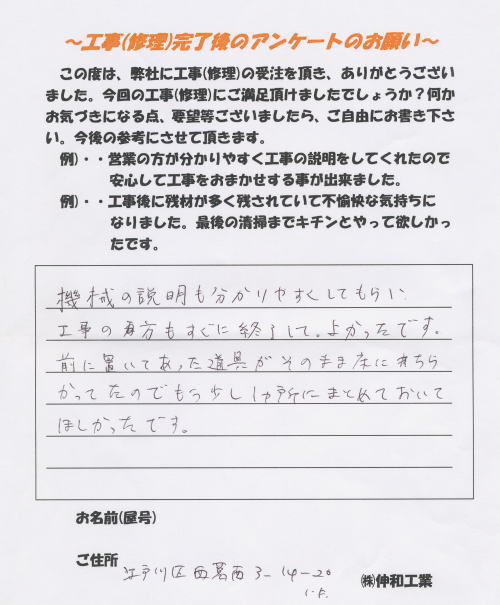 ～工事(修理)完了後のアンケートのお願い～
この度は、弊社に工事(修理)の受注を頂き、ありがとうござい
ました。今回の工事(修理)にご満足頂けましたでしょうか？何か
お気づきになる点、要望等ございましたら、ご自由にお書き下さ
い。今後の参考にさせて頂きます。
例)・・営業の方が分かりやすく工事の説明をしてくれたので
安心して工事をおまかせする事が出来ました。
例)・・工事後に残材が多く残されていて不愉快な気持ちに
なりました。最後の清掃までキチンとやって欲しかっ
たです。
機械の説明も分かりやすくしてもらい
工事の方もすぐに終了して、よかったです。
前に置いてあった道具がそのまま床にちら
かってたのでもう少し1ヶ所にまとめておいて
ほしかったです。
お名前(屋号)
ご住所 江戸川区西葛西3-14-20
1F.
㈱伸和工業